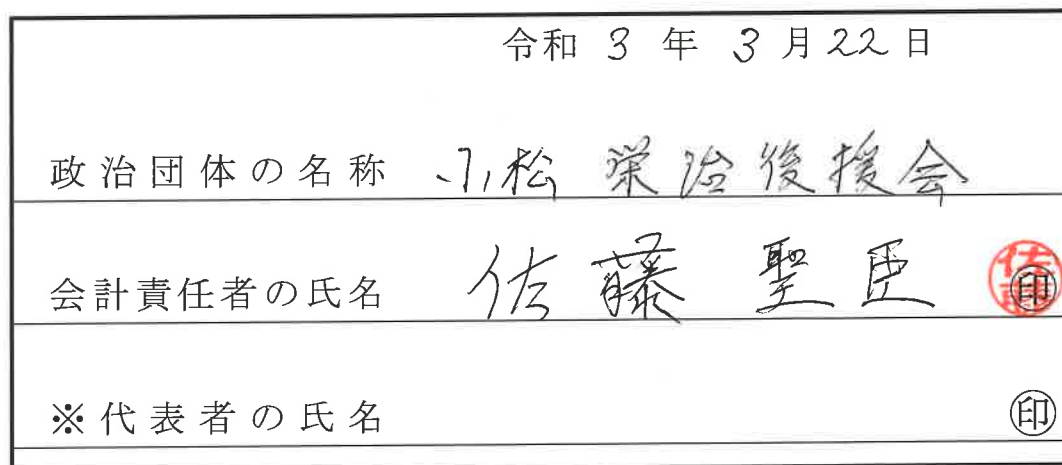 令和 3 年 3 月 22 日
政治団体の名称 小松 栄治後援会
会計責任者の氏名 佐藤 聖臣 ㊞
※代表者の氏名 ㊞